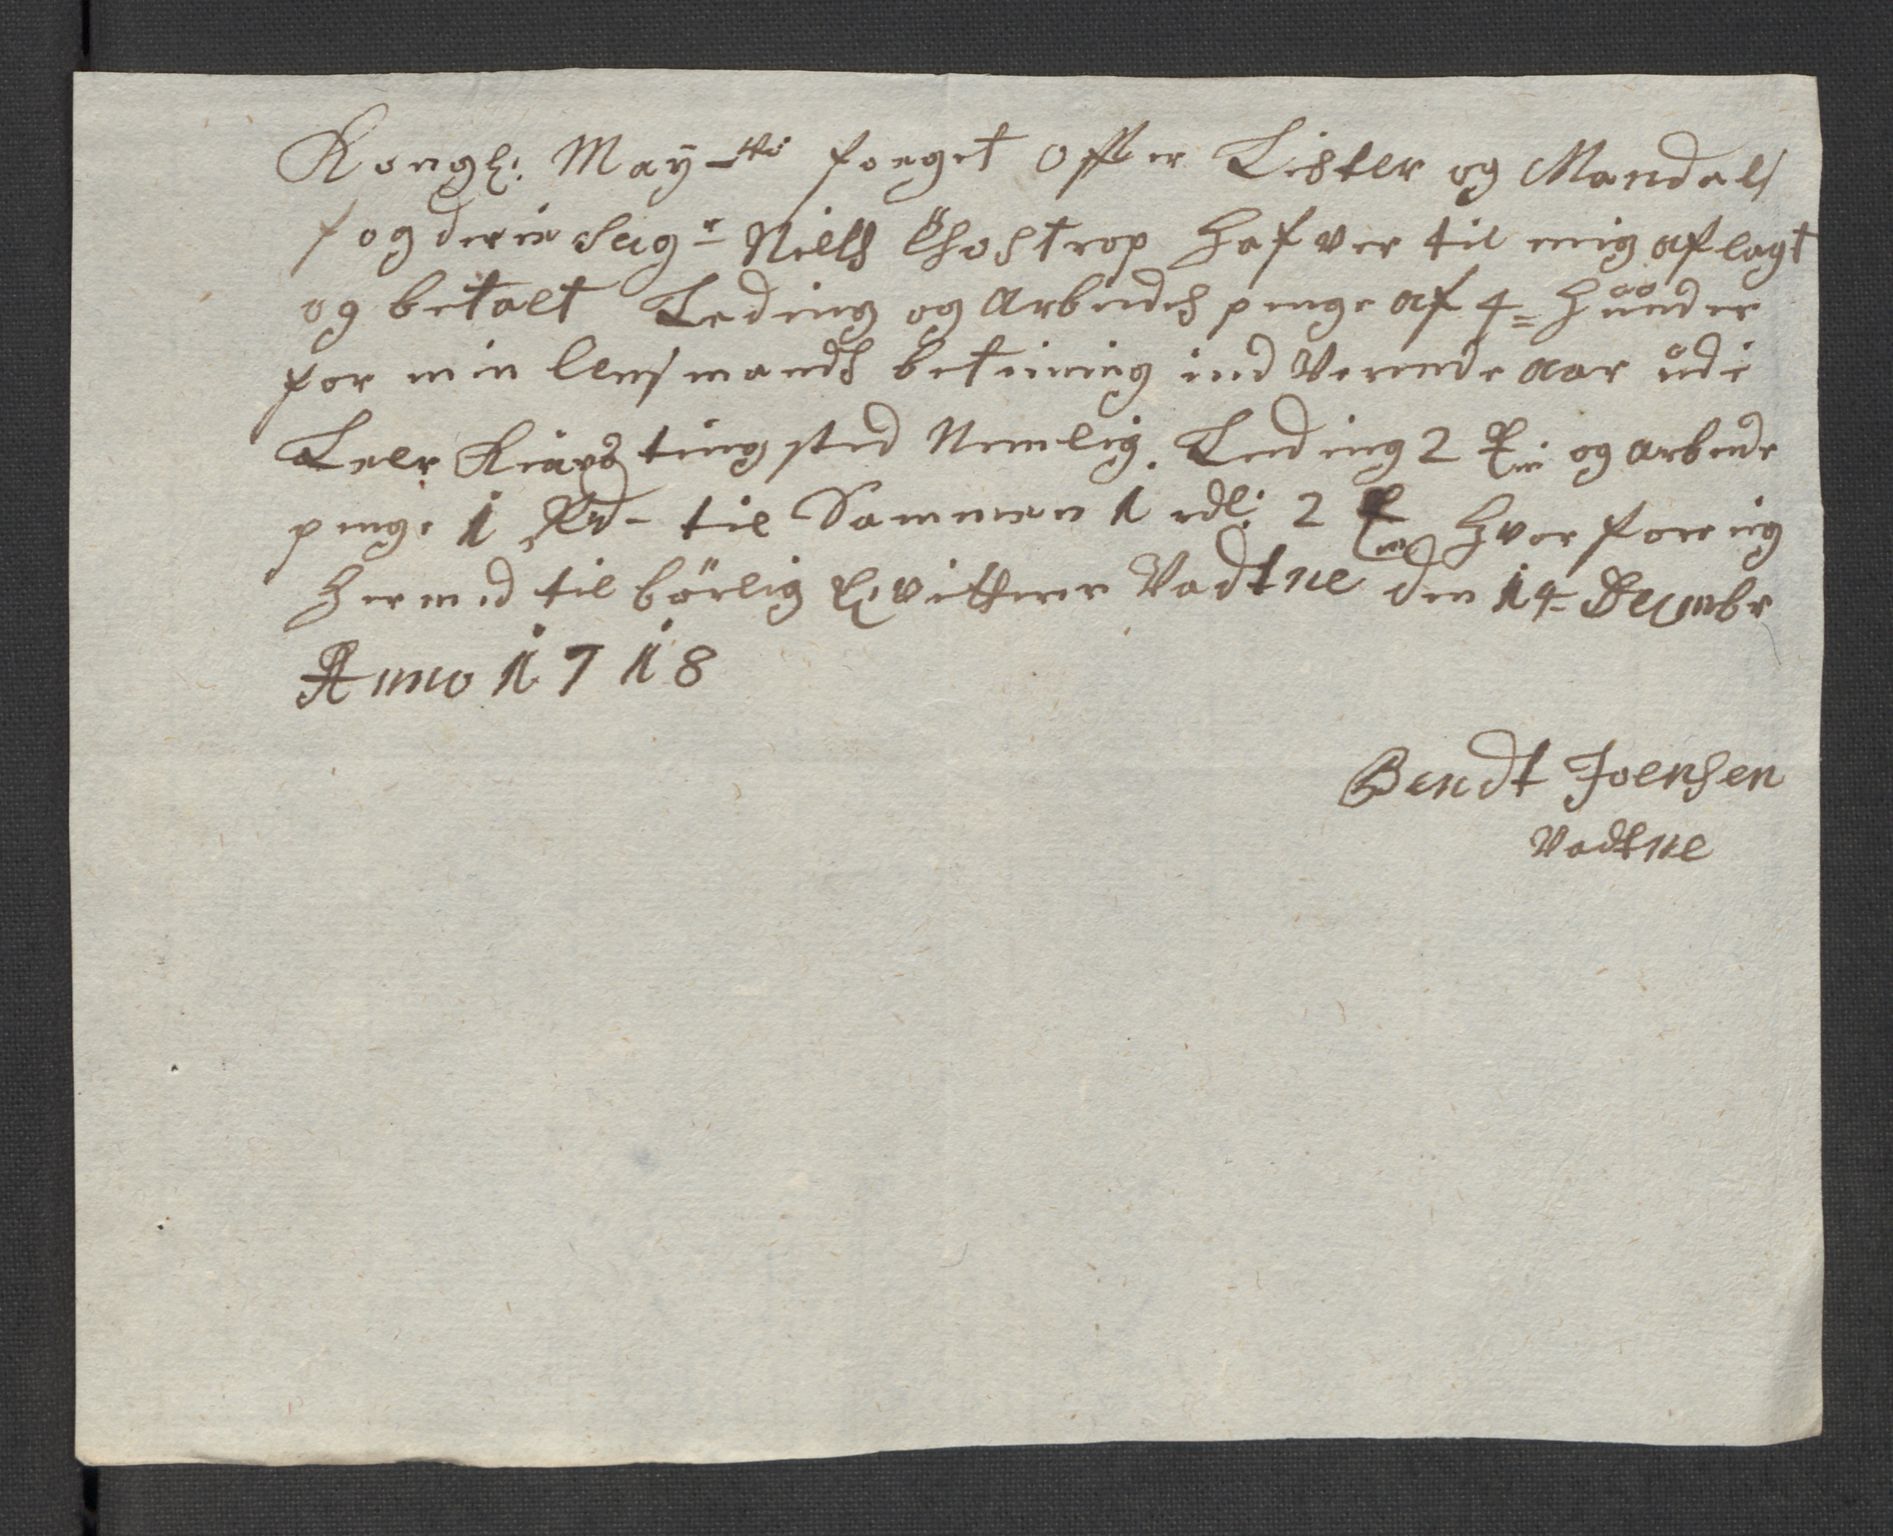 Kongl: May-tts foeget offuer Lister og Mandals
fogderie Seigr Niells Thostrop Hafver til mig aflagt
og betalt Leding og Arbeids penge af 4= Hünder
for min lensmands betiening ind Verende aar üdi
tingsted Nemlig. Leeding 2 og arbeide
penge 1 Rd- til Sammen 1 rdl: 2 Hvor fore ieg
Hermed til börlig qvitterer Vadtne den 14= Decembr
Anno 1718
Bendt Joensen
Vadtne